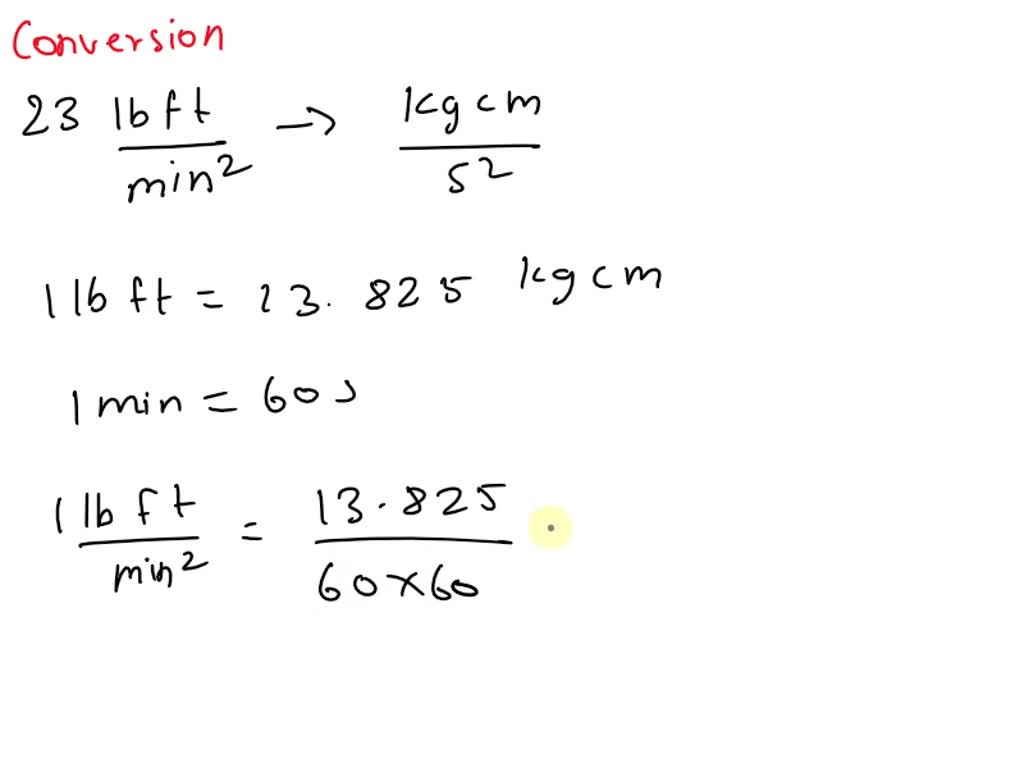 Conversion
23 lb ft / min² → kg cm / s²
1 lb ft = 13.825 kg cm
1 min = 60 s
1 lb ft / min² = 13.825 / 60×60